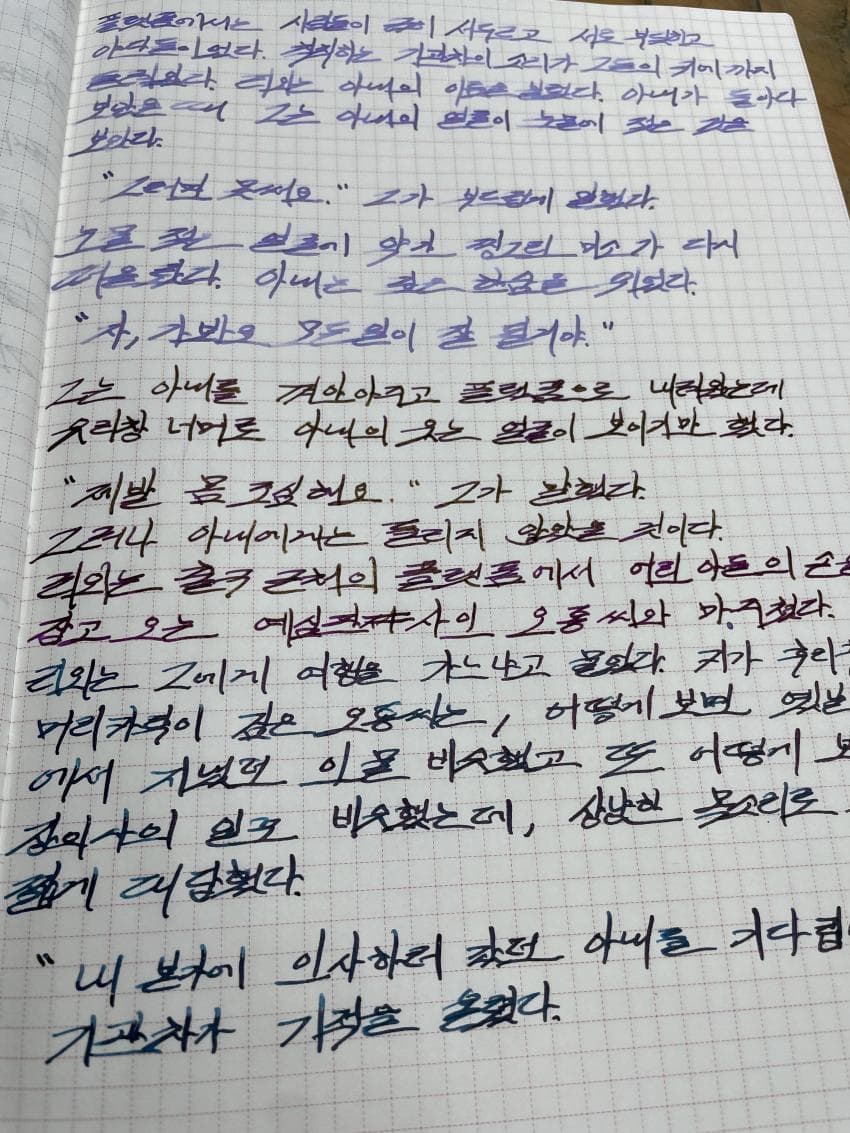 플랫폼에서는 사람들이 급히 서두르고 서로 부딪히고
야단들이었다. 칙칙하는 기관차의 소리가 그들의 귀에까지
들려왔다. 리외는 아내의 이름을 불렀다. 아내가 돌아다
보았을 때 그는 아내의 얼굴이 눈물에 젖은 것을
보았다.
"그러면 못써요." 그가 부드럽게 말했다.
눈물 젖은 얼굴에 약간 찡그린 미소가 다시
떠올랐다. 아내는 깊은 한숨을 쉬었다.
"자, 가봐요 모두 일이 잘 될거야."
그는 아내를 껴안아주고 플랫폼으로 내려왔는데
유리창 너머로 아내의 웃는 얼굴이 보이기만 했다.
"제발 몸 조심해요." 그가 말했다.
그러나 아내에게는 들리지 않았을 것이다.
리외는 출구 근처의 플랫폼에서 어린 아들의 손을
잡고 오는 예심판사인 오통 씨와 마주쳤다.
리외는 그에게 여행을 가느냐고 물었다. 키가 후리
머리카락이 검은 오통씨는, 어떻게 보면 옛날
에서 지냈던 이 꼴 비슷했고 또 어떻게 보
장의사의 일꾼 비슷했는데, 상냥한 목소리로
짧게 대답했다.
"내 본가에 인사하러 갔던 아내를 기다립
기관차가 기적을 울렸다.